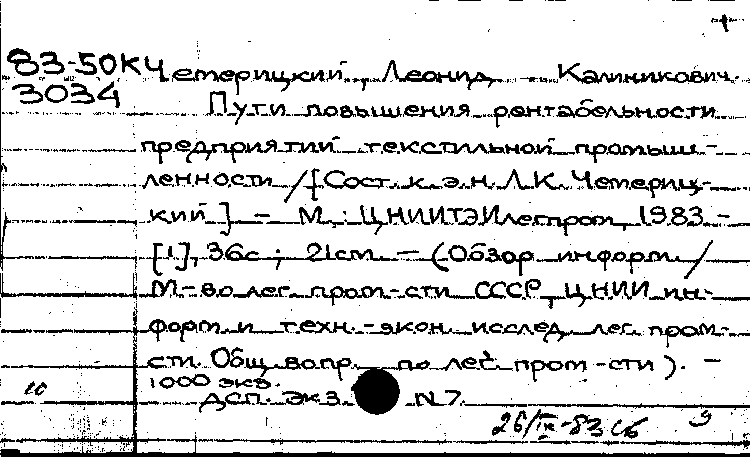 83-50К Четерицкий, Леонид Калиникович.
3034 Пути повышения рентабельности
предприятий текстильной промыш-
ленности / [Сост. к.э.н. Л.К. Четериц-
кий]. - М.: ЦНИИТЭИлегпром, 1983. -
[1], 36с.; 21см. - (Обзор. информ. /
М-во лег. пром-сти СССР, ЦНИИ ин-
форм. и техн.-экон. исслед. лег. пром-
сти. Общ. вопр. по лег. пром-сти). -
1000 экз.
10 ДСП. Экз. N7.
26/IX-83 9